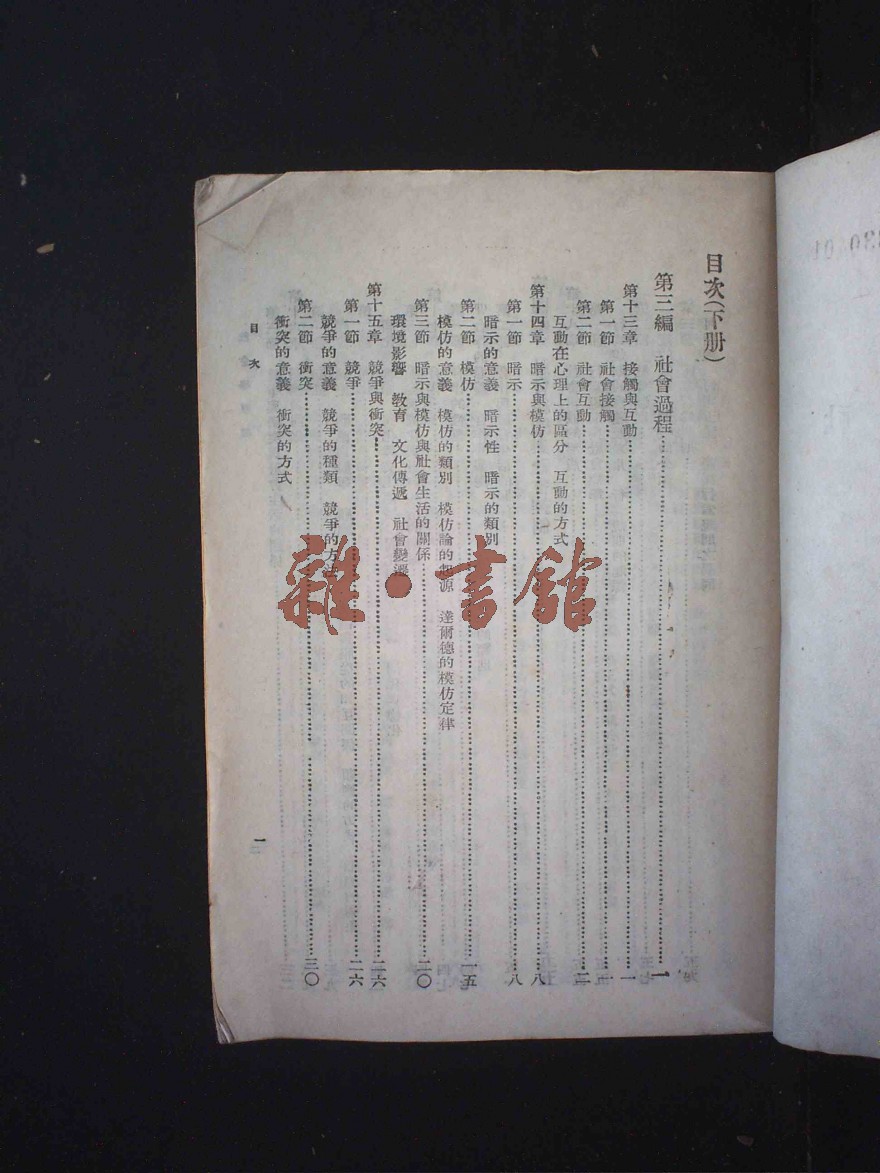 目次(下册)
第三編　社會過程…………一
第十三章　接觸與互動…………一
第一節　社會接觸…………一
第二節　社會互動…………二
互動在心理上的區分　互動的方式
第十四章　暗示與模仿…………八
第一節　暗示…………八
暗示的意義　暗示性　暗示的類別
第二節　模仿…………一五
模仿的意義　模仿的類別　模仿論的起源　達爾德的模仿定律
第三節　暗示與模仿與社會生活的關係…………二〇
環境影響　教育　文化傳遞　社會變遷
第十五章　競爭與衝突…………二六
第一節　競爭…………二六
競爭的意義　競爭的種類　競爭的方法
第二節　衝突…………三〇
衝突的意義　衝突的方式
目次
一
雜·書館